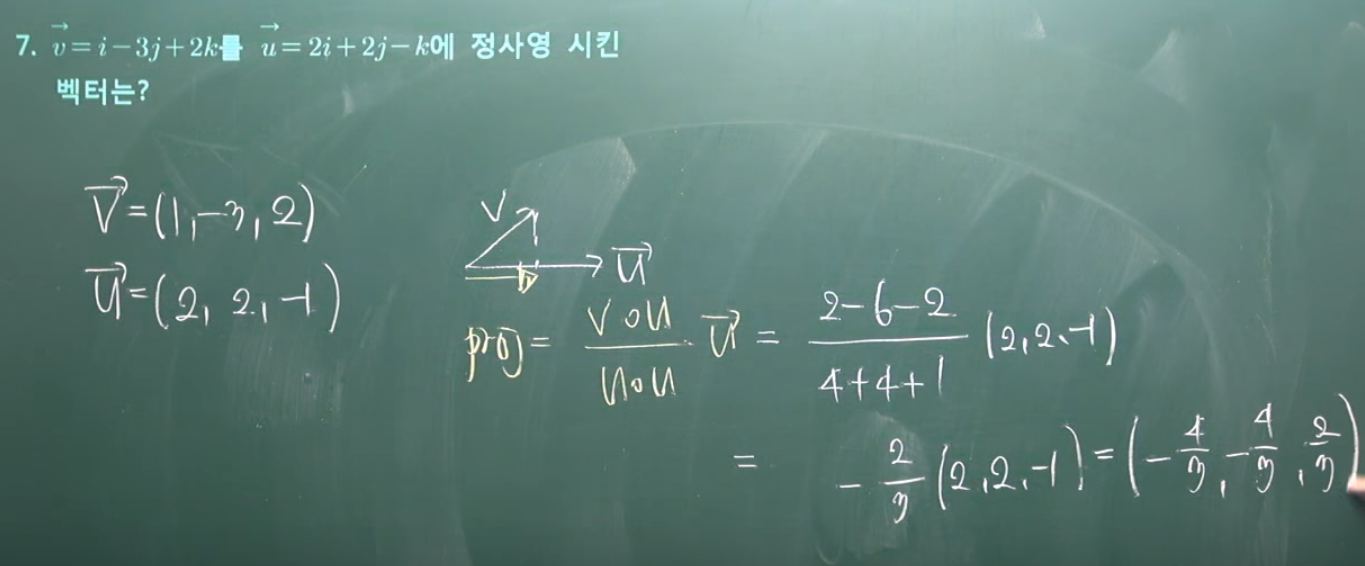 7. v⃗ = i − 3j + 2k를 u⃗ = 2i + 2j − k에 정사영 시킨
벡터는?
V⃗ = (1, −3, 2)
u⃗ = (2, 2, −1)
V
u⃗
proj = V∘u / u∘u · u⃗ = 2−6−2 / 4+4+1 (2, 2, −1)
= −2/3 (2, 2, −1) = (−4/3, −4/3, 2/3)